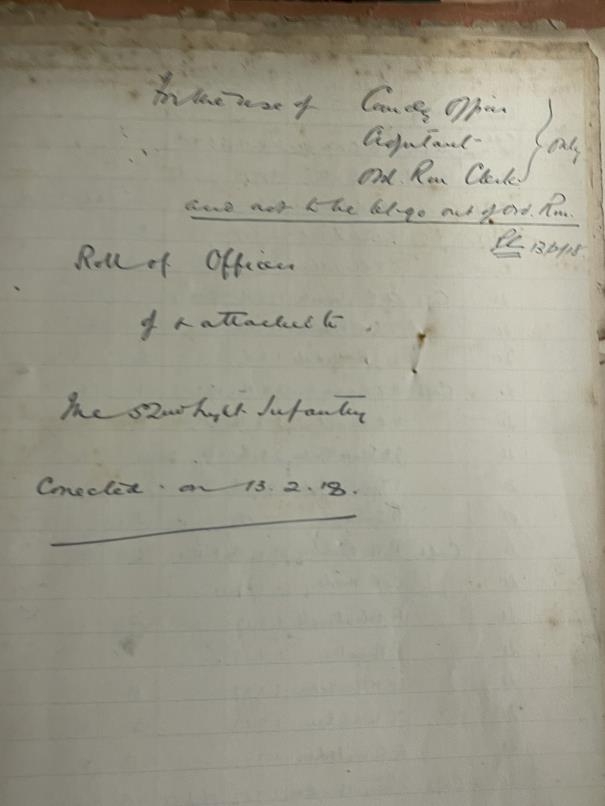 For the use of Comdg Officer
Adjutant
Ord. Rm Clerk
only
and not to be let go out of Ord. Rm.
13/2/18
Roll of Officers
of & attached to
The 52nd Light Infantry
Corrected on 13.2.18.